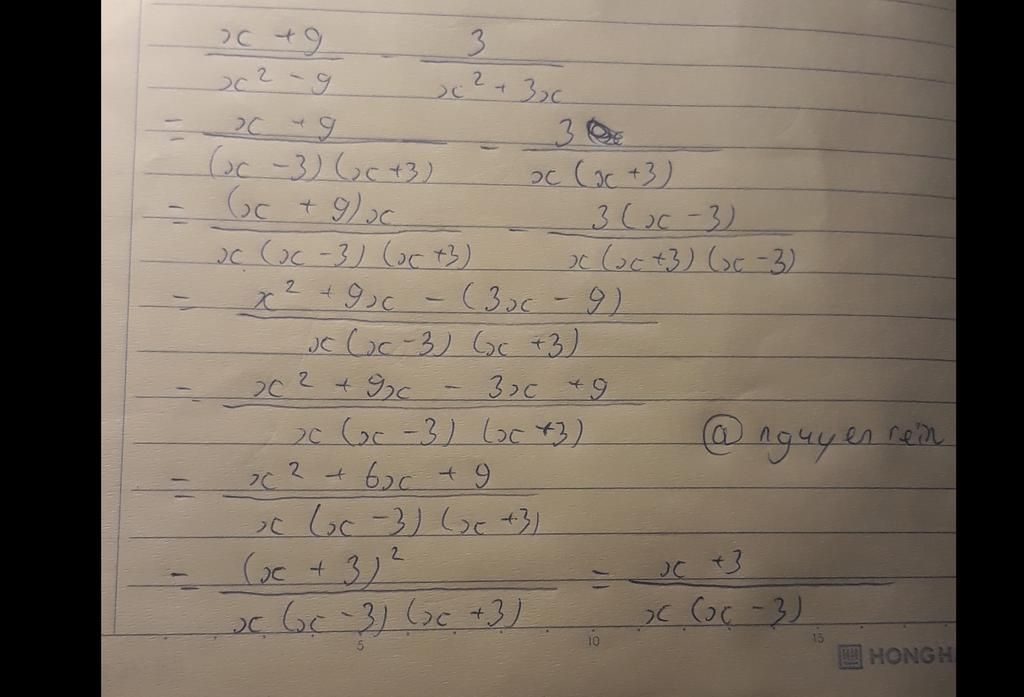 x + 9 / x² - 9 - 3 / x² + 3x
= x + 9 / (x - 3)(x + 3) - 3 / x(x + 3)
= (x + 9)x / x(x - 3)(x + 3) - 3(x - 3) / x(x + 3)(x - 3)
= x² + 9x - (3x - 9) / x(x - 3)(x + 3)
= x² + 9x - 3x + 9 / x(x - 3)(x + 3)
@nguyenrein
= x² + 6x + 9 / x(x - 3)(x + 3)
= (x + 3)² / x(x - 3)(x + 3) = x + 3 / x(x - 3)
5 10 15
HONGH